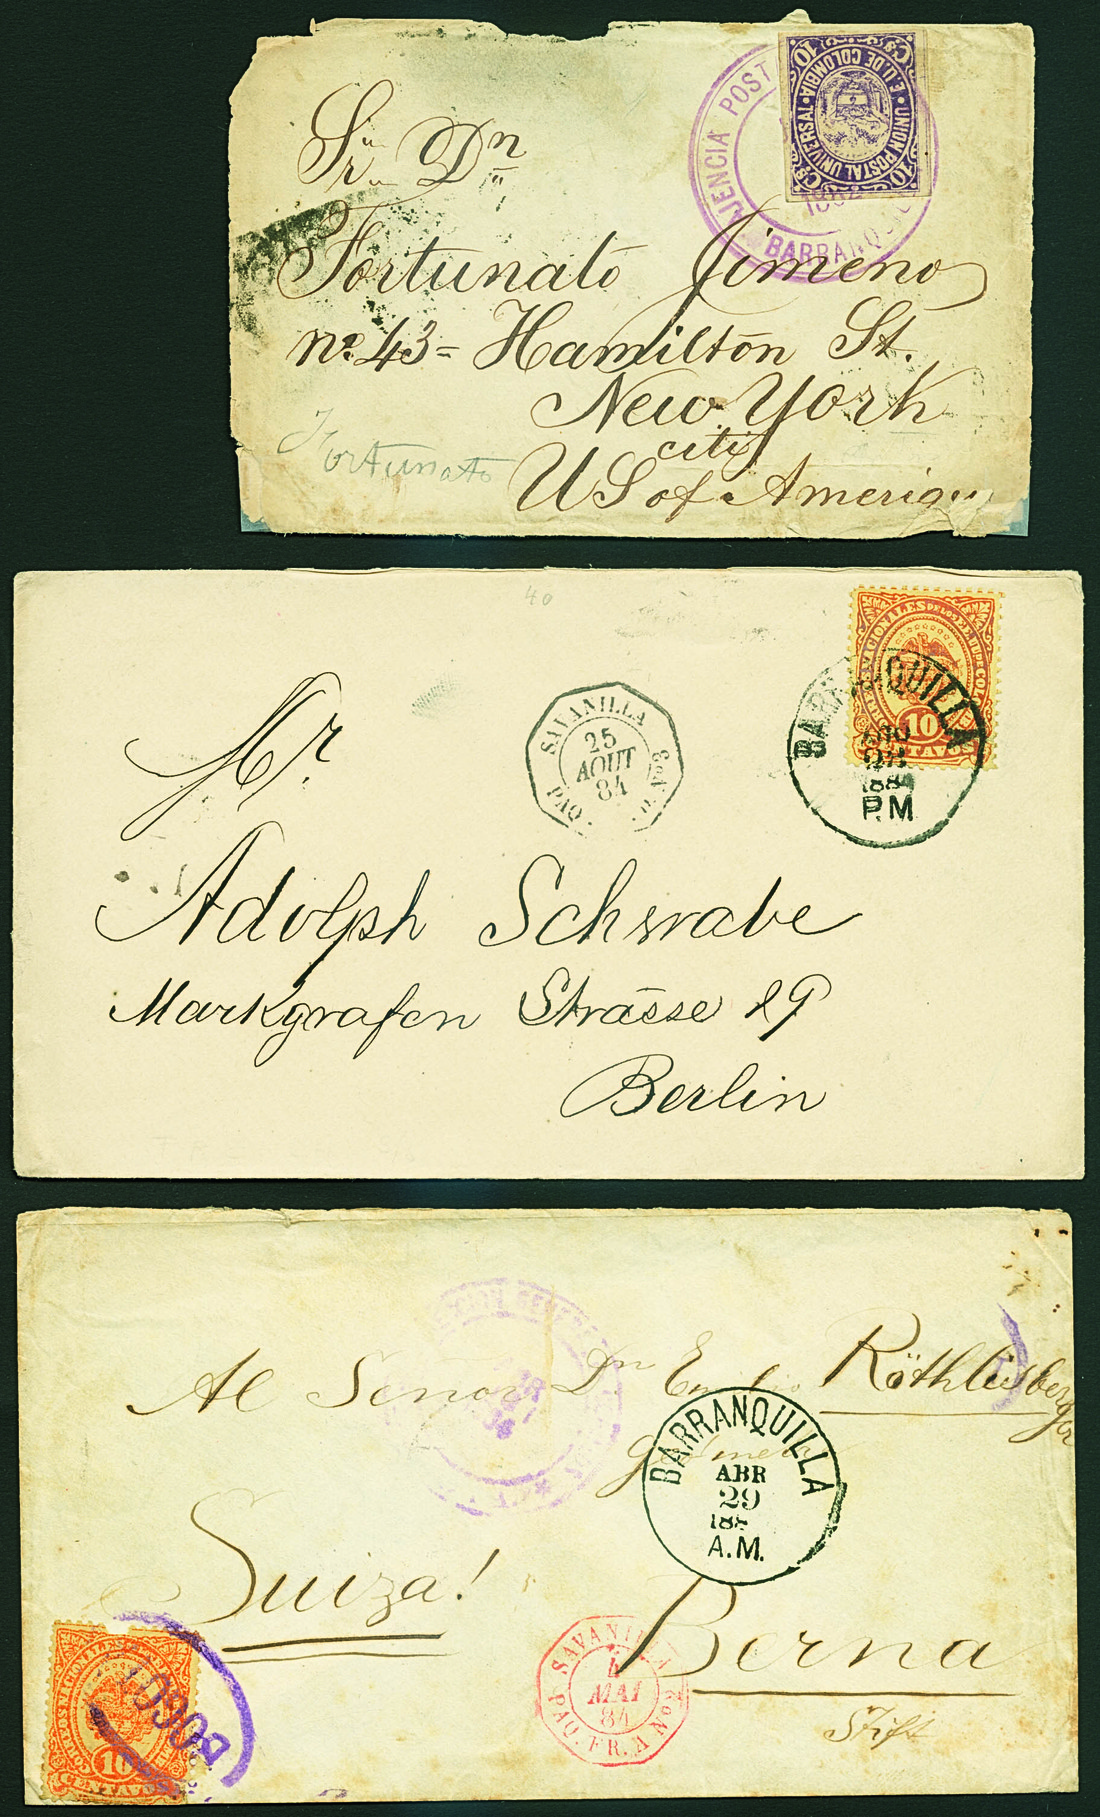 Sr. Dn
Fortunato Jimeno
No. 43 = Hamilton St.
New York
city
US of Amerique
Fortunato
AJENCIA POST
1882
BARRANQUI
E. U. DE COLOMBIA
UNION POSTAL UNIVERSAL
10 10
Cs Cs
40
Mr.
Adolph Schwabe
Markgrafen Strasse 29
Berlin
SAVANILLA
25
AOUT
84
PAQ. FR. A No 3
BARRANQUILLA
AGO
1884
P.M
10
CENTAVOS
Al Señor Dn Emilio Röthlisberger
Suiza!
Berna
Stift
BARRANQUILLA
ABR
29
188
A.M.
SAVANILLA
4
MAI
84
PAQ. FR. A No 2
BOGO
CORREOS NACIONALES
10
CENTAVOS